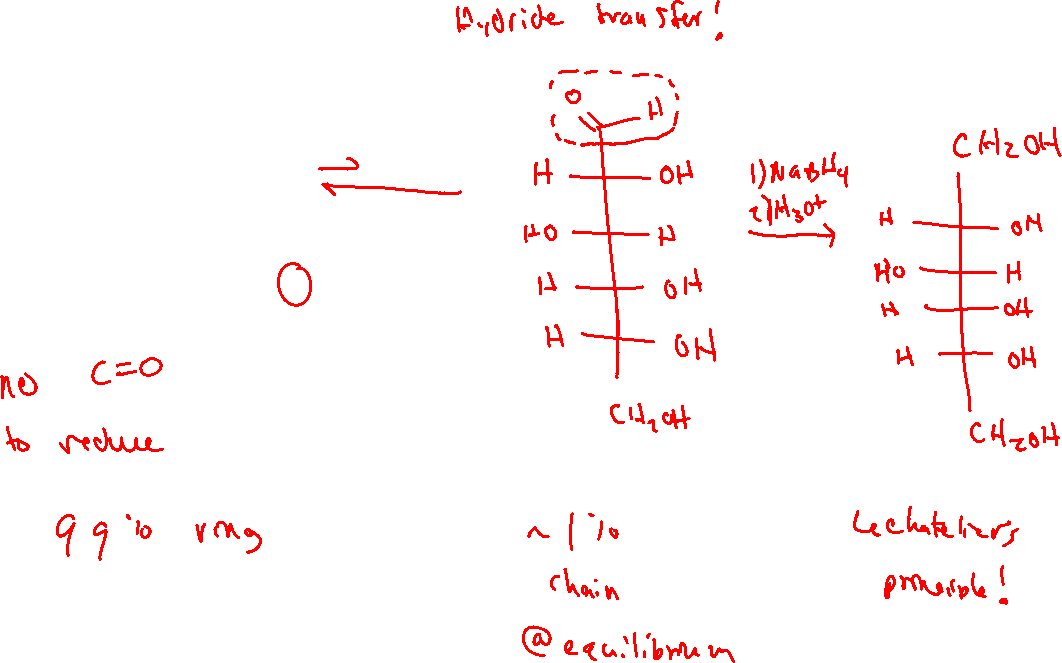 Hydride transfer!
O
H
H OH
HO H
H OH
H OH
CH2OH
1) NaBH4
2) H3O+
CH2OH
H OH
HO H
H OH
H OH
CH2OH
O
no C=O
to reduce
99% ring
~1%
chain
@equilibrium
Lechateliers
principle!